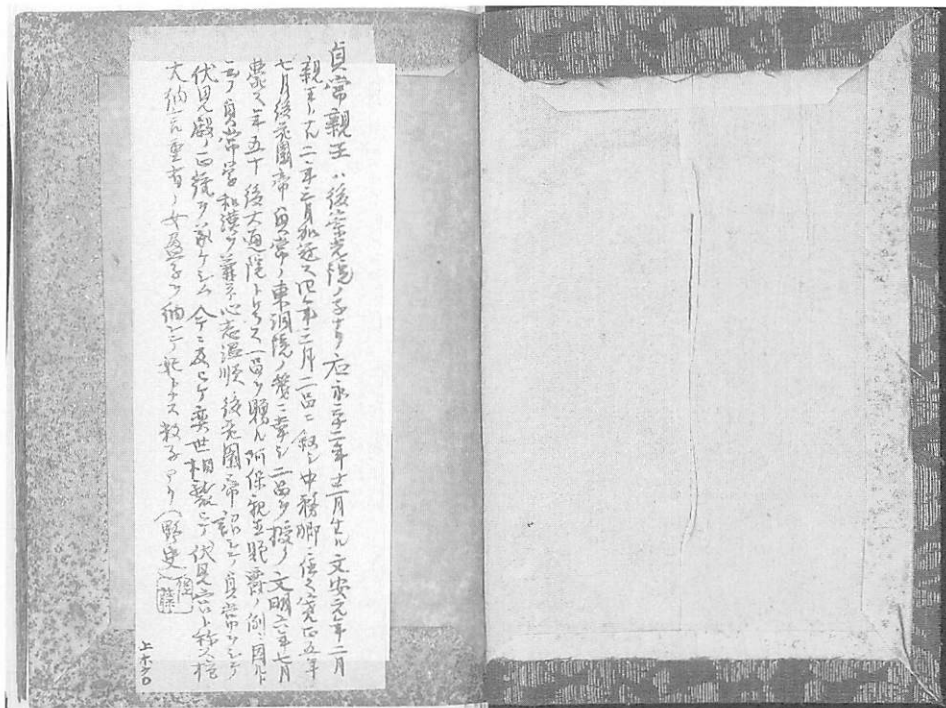 貞常親王ハ後崇光院ノ子ナリ応永三十二年十二月生ル文安元年二月
親王トナル二年三月加冠ス四年二月二品ニ叙シ中務卿ニ任ス寛正五年
七月後花園帝貞常ノ東洞院ノ第ニ幸シ一品ヲ授ク文明六年七月
薨ス年五十後大通院ト号ス一品ヲ贈ル阿保親王
ノ例ニ因ル
云フ貞常学和漢ヲ兼ネ心志温順後花園帝詔シテ貞常ヲシテ
伏見殿ノ正統ヲ承ケシム今ニ及ビテ奕世相襲シテ伏見宮ト称ス権
大納言重有ノ女盈子ヲ納シテ妃トス数子アリ(野史)